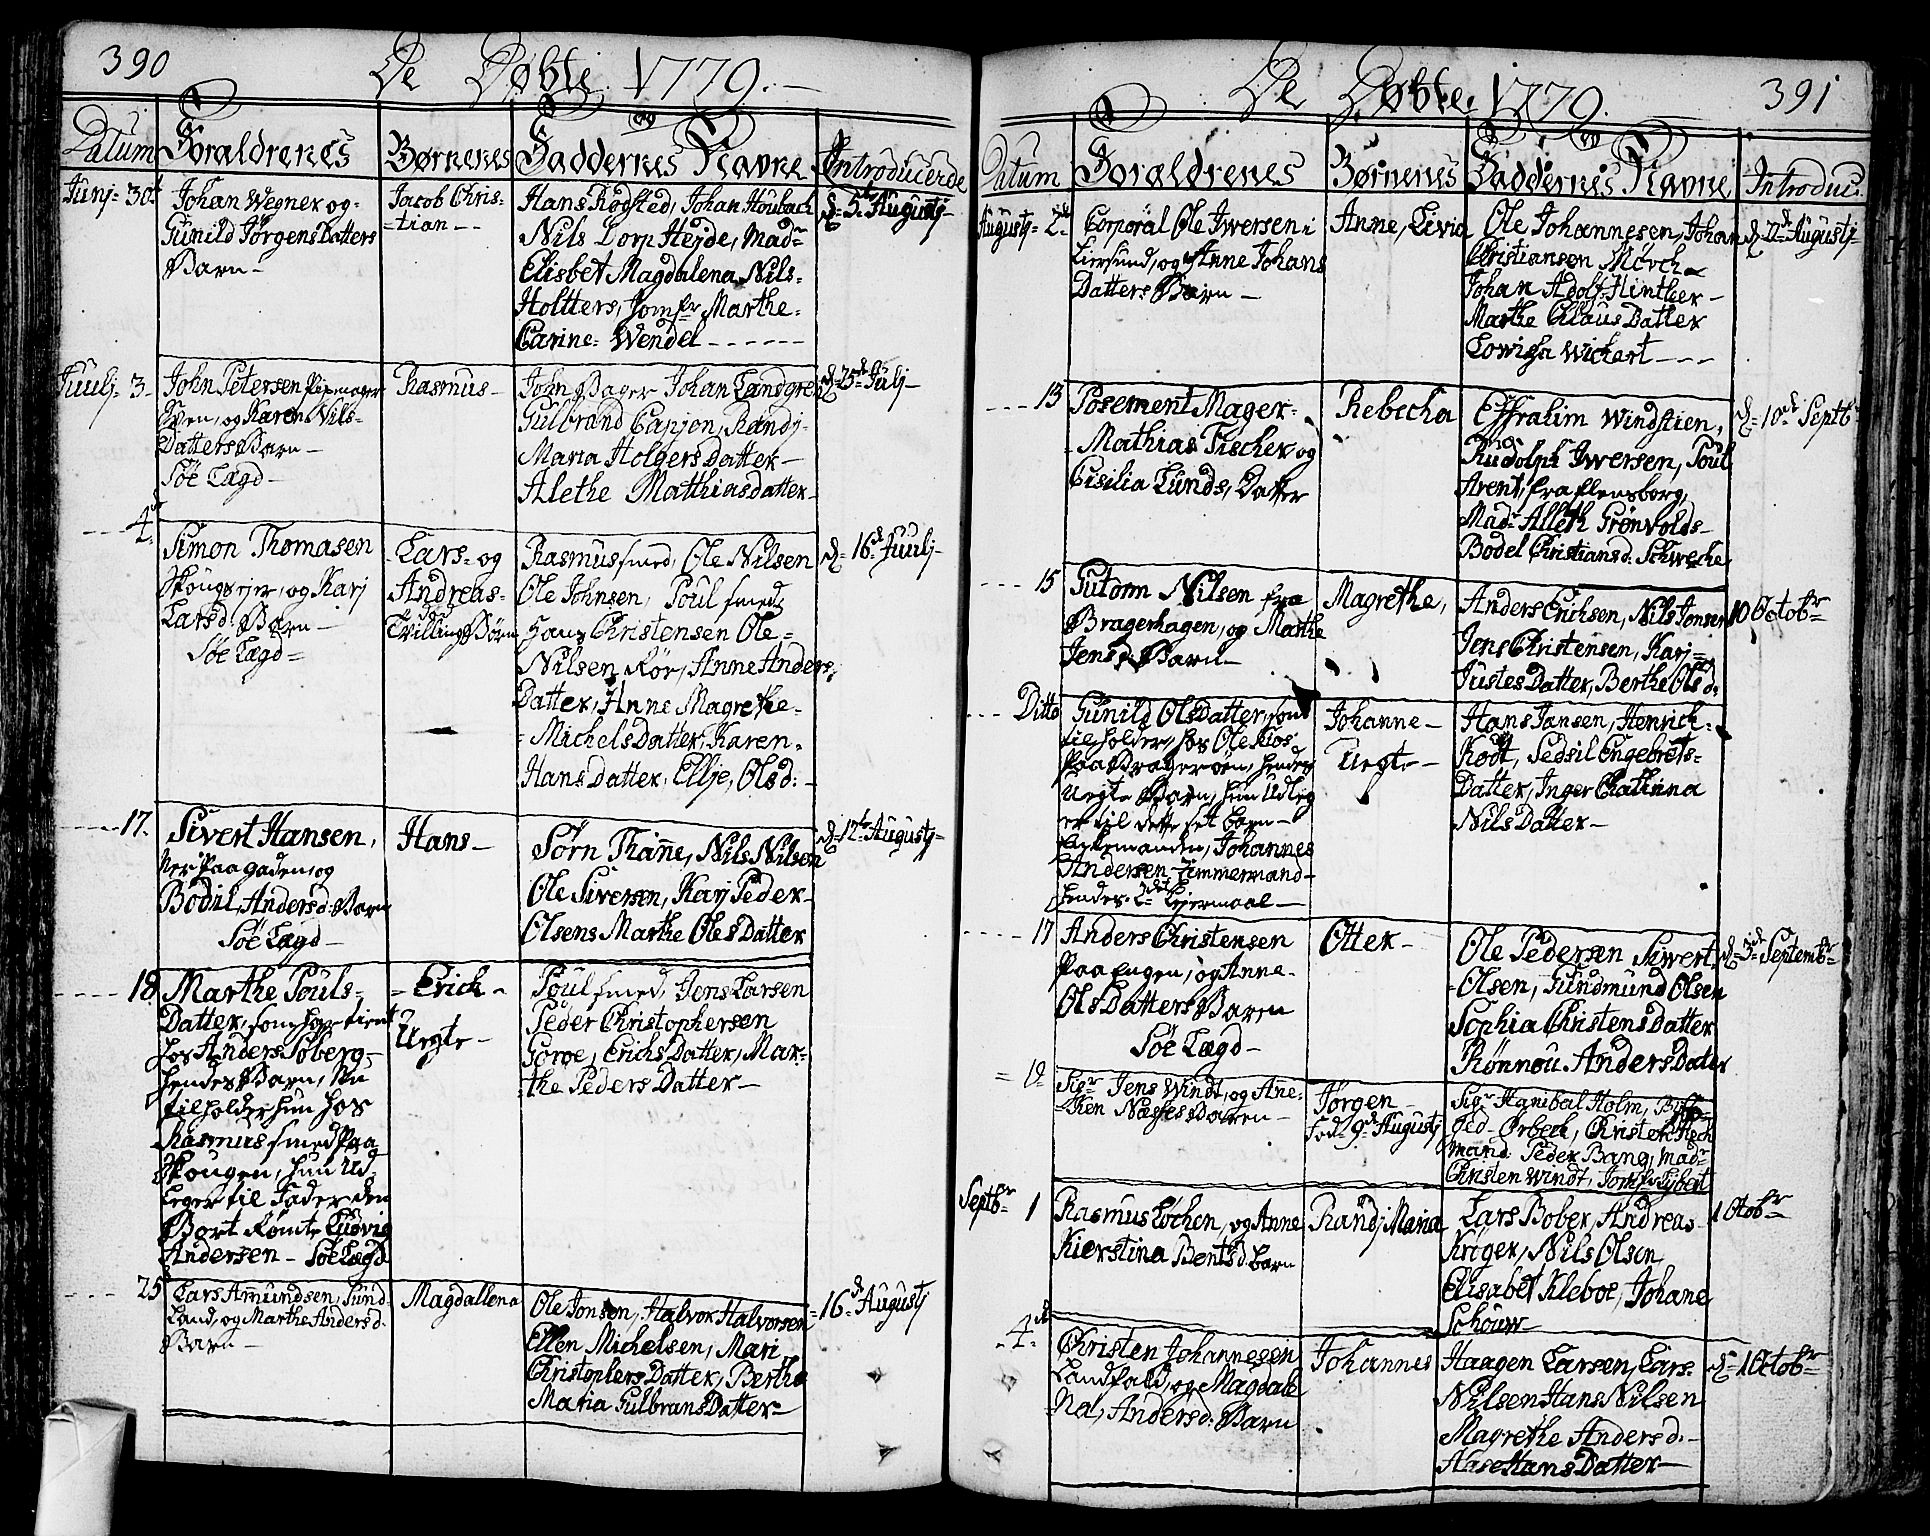 390
De Døbte 1779.
Datum
Foraldrenes
Børnenes
Faddernes Navne
Introducerde
Junj= 30t
Johan Wegner og-
Gunild JørgensDatters
Barn-
Jacob Chris-
-tian--
Hans Rødsted, Johan Houbach
Nils Lorp Heyde, Madr
Elisbet Magdalena Nils-
Holtters, Jomfr Marthe-
Carine= Wendel
d= 5t Augustj-
Juulj= 3-
John Petersen Pipemager
Sven, og Karen Nils-
Datters Barn-
Søe Lægd-
Rasmus-
John Bager Johan Landgren
Gulbrand Canjon, Randj-
Maria HolgersDatter-
Alethe Matthiasdatter-
d=25d Julj-
4d
Simon Thomasen
Skougsejer, og Karj
Larsd: Barn-
Søe Lægd=
Lars- og
Andreas-
TvillingsBørn
Rasmus smed, Ole Nilsen
Ole Johnsen, Poul smed
Hans Christensen Ole-
Nilsen Rør, Anne Anders
Datter, Anne Magrethe-
-MichelsDatter, Karen-
Hansdatter, Ellje, Olsd:-
d= 16d Juulj-
17.
Sivert Hansen,
Ner Paa gaden, og
Bodil, Andersd. Barn
Søe Lægd-
Hans-
Sørn Thañe, Nils Nilsen
Ole Siversen, Karj Peder-
Olsens Marthe OlesDatter
d=12t Augustj-
18
Marthe Pouls-
Datter, som har tient
hos Anders Soberg-
hendes Barn, Nu
tilholder hun hos
Rasmus smed Paa
Skougen, hun Ud-
Leger til Fader den
Bort Rømte Ludvig
Andersen- Søe Lægd
-Erich-
Uegte-
Poul smed, Jens Larsen
Peder Christophersen
Goroe, ErichsDatter, Mar-
-the PedersDatter-
25
Lars Amundsen, Sund-
Land, og Marthe Andersd.
Barn-
Magdallena
Ole Jonsen, Halvor Halvorsen
Ellen Michelsen, Mari-
ChristophersDatter, Berthe
Maria GulbransDatter-
=16d Augustj
391
De Døbte. 1779.
Datum
Foraldrenes
Børnenes
Faddernes Navne
Introduc:
Augustj= 2d
Corporal Ole Iwersen i
Liersund, og Anne Johans
Datters Barn-
Anne, Livia
Ole Johannesen, Johan
Christiansen Mørch
Johan Adolf Hintler-
Marthe ClausDatter
Lowisa Wichert---
d. 22d Augustj-
13
Posement Mager-
Mathias Fischer og
Cisilia Lunds, Datter
Rebecha
Effraiim Windstien,
Rudolph Iwersen, Poul
Arent, fra flensborg,
Madr Alleth Grønvolds-
Bodel Christiansd. Schweche
d= 10d Septbr
15
Gutorm Nilsen fra
Bragerhagen, og Marthe
Jensd Barn-
Magrethe,
Anders Erichsen, Nils Jonsen
Jens Christensen, Karj-
JustesDatter, Berthe Olsd:
10 Octobr
Ditto
Gunild OlsDatter, som
tilholder, hos Ole Moss
Paa Brageroen, hendes
Uegte Barn, hun Udleg
er til dette sit barn-
Johannes
Andersen Timmermand-
hendes 2det Leiermaal-
Johanne-
Uegte-
Hans Jansen, Henrich-
Rodt, Sedsil Engebrets-
Datter, Inger Chatinna
NilsDatter-
17
Anders Christensen
Paa Engen, og Anne-
OlsDatters Barn
Søe Lægd-
Otter-
Ole Pedersen Siwert
Olsen, Gundmund Olsen
Sophia ChristensDatter
Rønnou AndersDatter
d=3d Septembr
Sigr Jens Windt, og Ane-
-ken Næsses Barn-
Jørgen-
fod- 9d Augustj
Sigr Hanibal Holm,
Christen Hech
mand Peder Bang, Madr
Christen Windt, Jomfr Lybert
Septbr 1
Rasmus Lochen, og Anne
Kierstina Bentsd. barn
Randj Maria
Lars Bober, Andreas-
Kriger, Nils Olsen
Elisabet Kleboe, Johane
Schouw-
1 Octobr
4d
Christen Johannesen
Landfald, og Magdale
Na, Andersd: Barn
Johannes
Haagen Larsen, Lars-
Nilsen Hans Nilsen
Magrethe Andersd.-
Aase HansDatter-
d= 1 Octobr